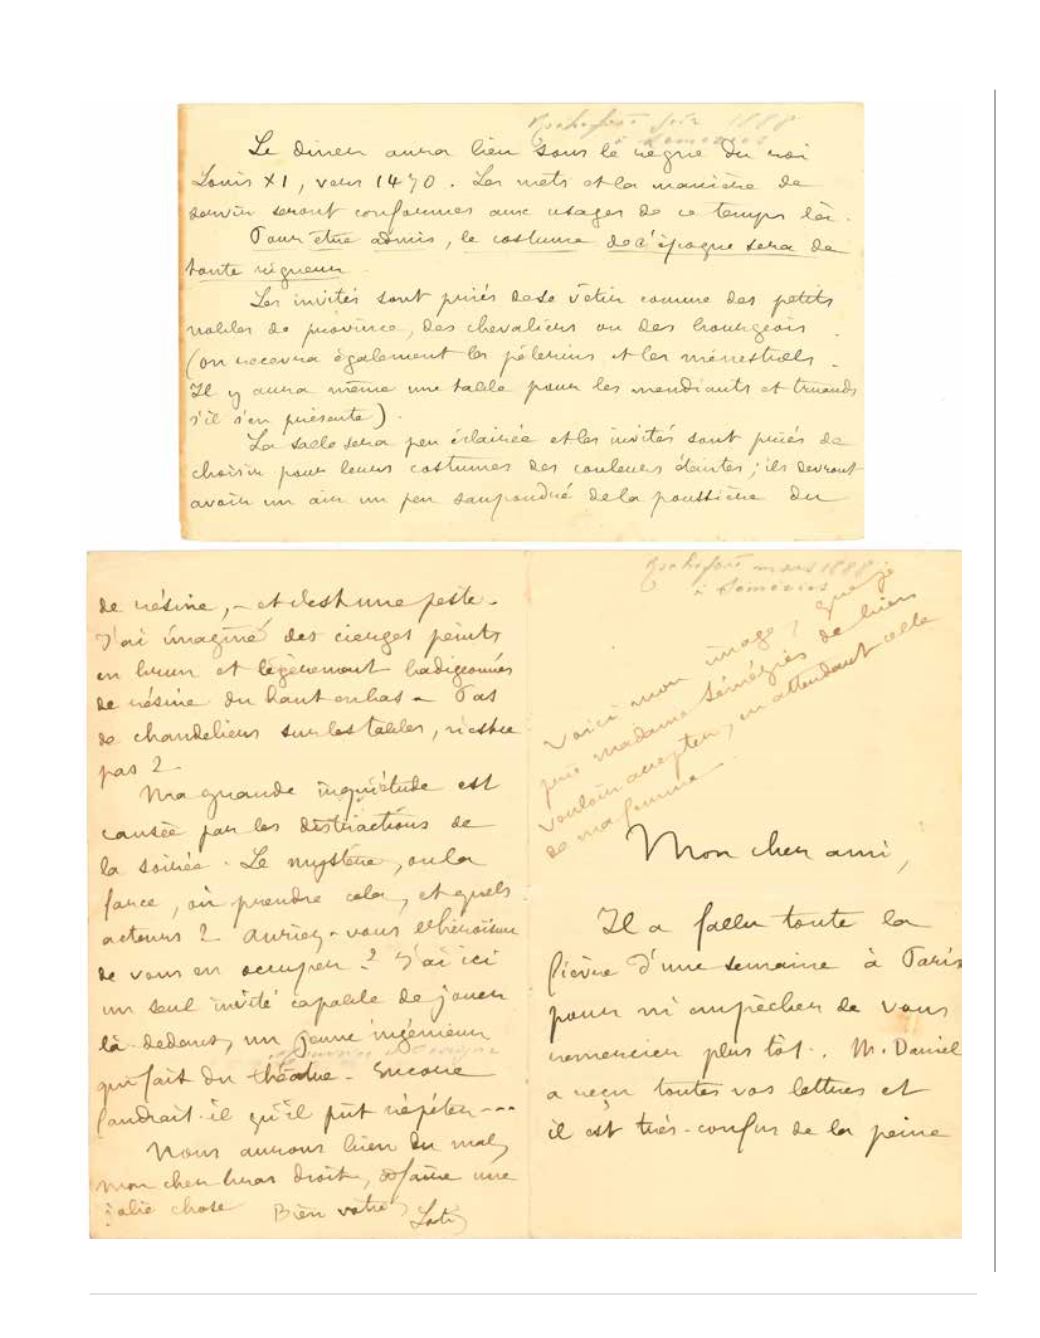 Rochefort fév 1888
à Semézies
Le diner aura lieu sous le règne du roi
Louis XI, vers 1470. Les mets et la manière de
servir seront conformes aux usages de ce temps là.
Pour être admis, le costume de l'époque sera de
toute rigueur
Les invités sont priés de se vêtir comme des petits
nobles de province, des chevaliers ou des bourgeois
(on recevra également les pélerins et les ménestrels.
Il y aura même une table pour les mendiants et truands
s'il s'en présente).
La salle sera peu éclairée et les invités sont priés de
choisir pour leurs costumes des couleurs éteintes; ils devront
avoir un air un peu saupoudré de la poussière du
de résine, - et c'est une peste.
J'ai imaginé des cierges peints
en brun et légèrement badigeonnés
de résine du haut en bas - Pas
de chandeliers sur les tables, n'est ce
pas ?
Ma grande inquiétude est
causée par les distractions de
la soirée. Le mystère, ou la
farce, où prendre cela, et quels
acteurs ? auriez-vous l'héroïsme
de vous en occuper ? J'ai ici
un seul invité capable de jouer
là-dedans, un jeune ingénieur
qui fait du théâtre - Encore
faudrait-il qu'il pût répéter ---
Nous aurons bien du mal,
mon cher bras droit, à faire une
jolie chose Bien votre Loti
Rochefort mars 1888
à Semézies
Voici mon image, que je
prie madame Sémézies de bien
vouloir accepter, en attendant celle
de ma femme.
Mon cher ami,
Il a fallu toute la
fièvre d'une semaine à Paris
pour m'empêcher de vous
remercier plus tôt. M. Daniel
a reçu toutes vos lettres et
il est très-confus de la peine